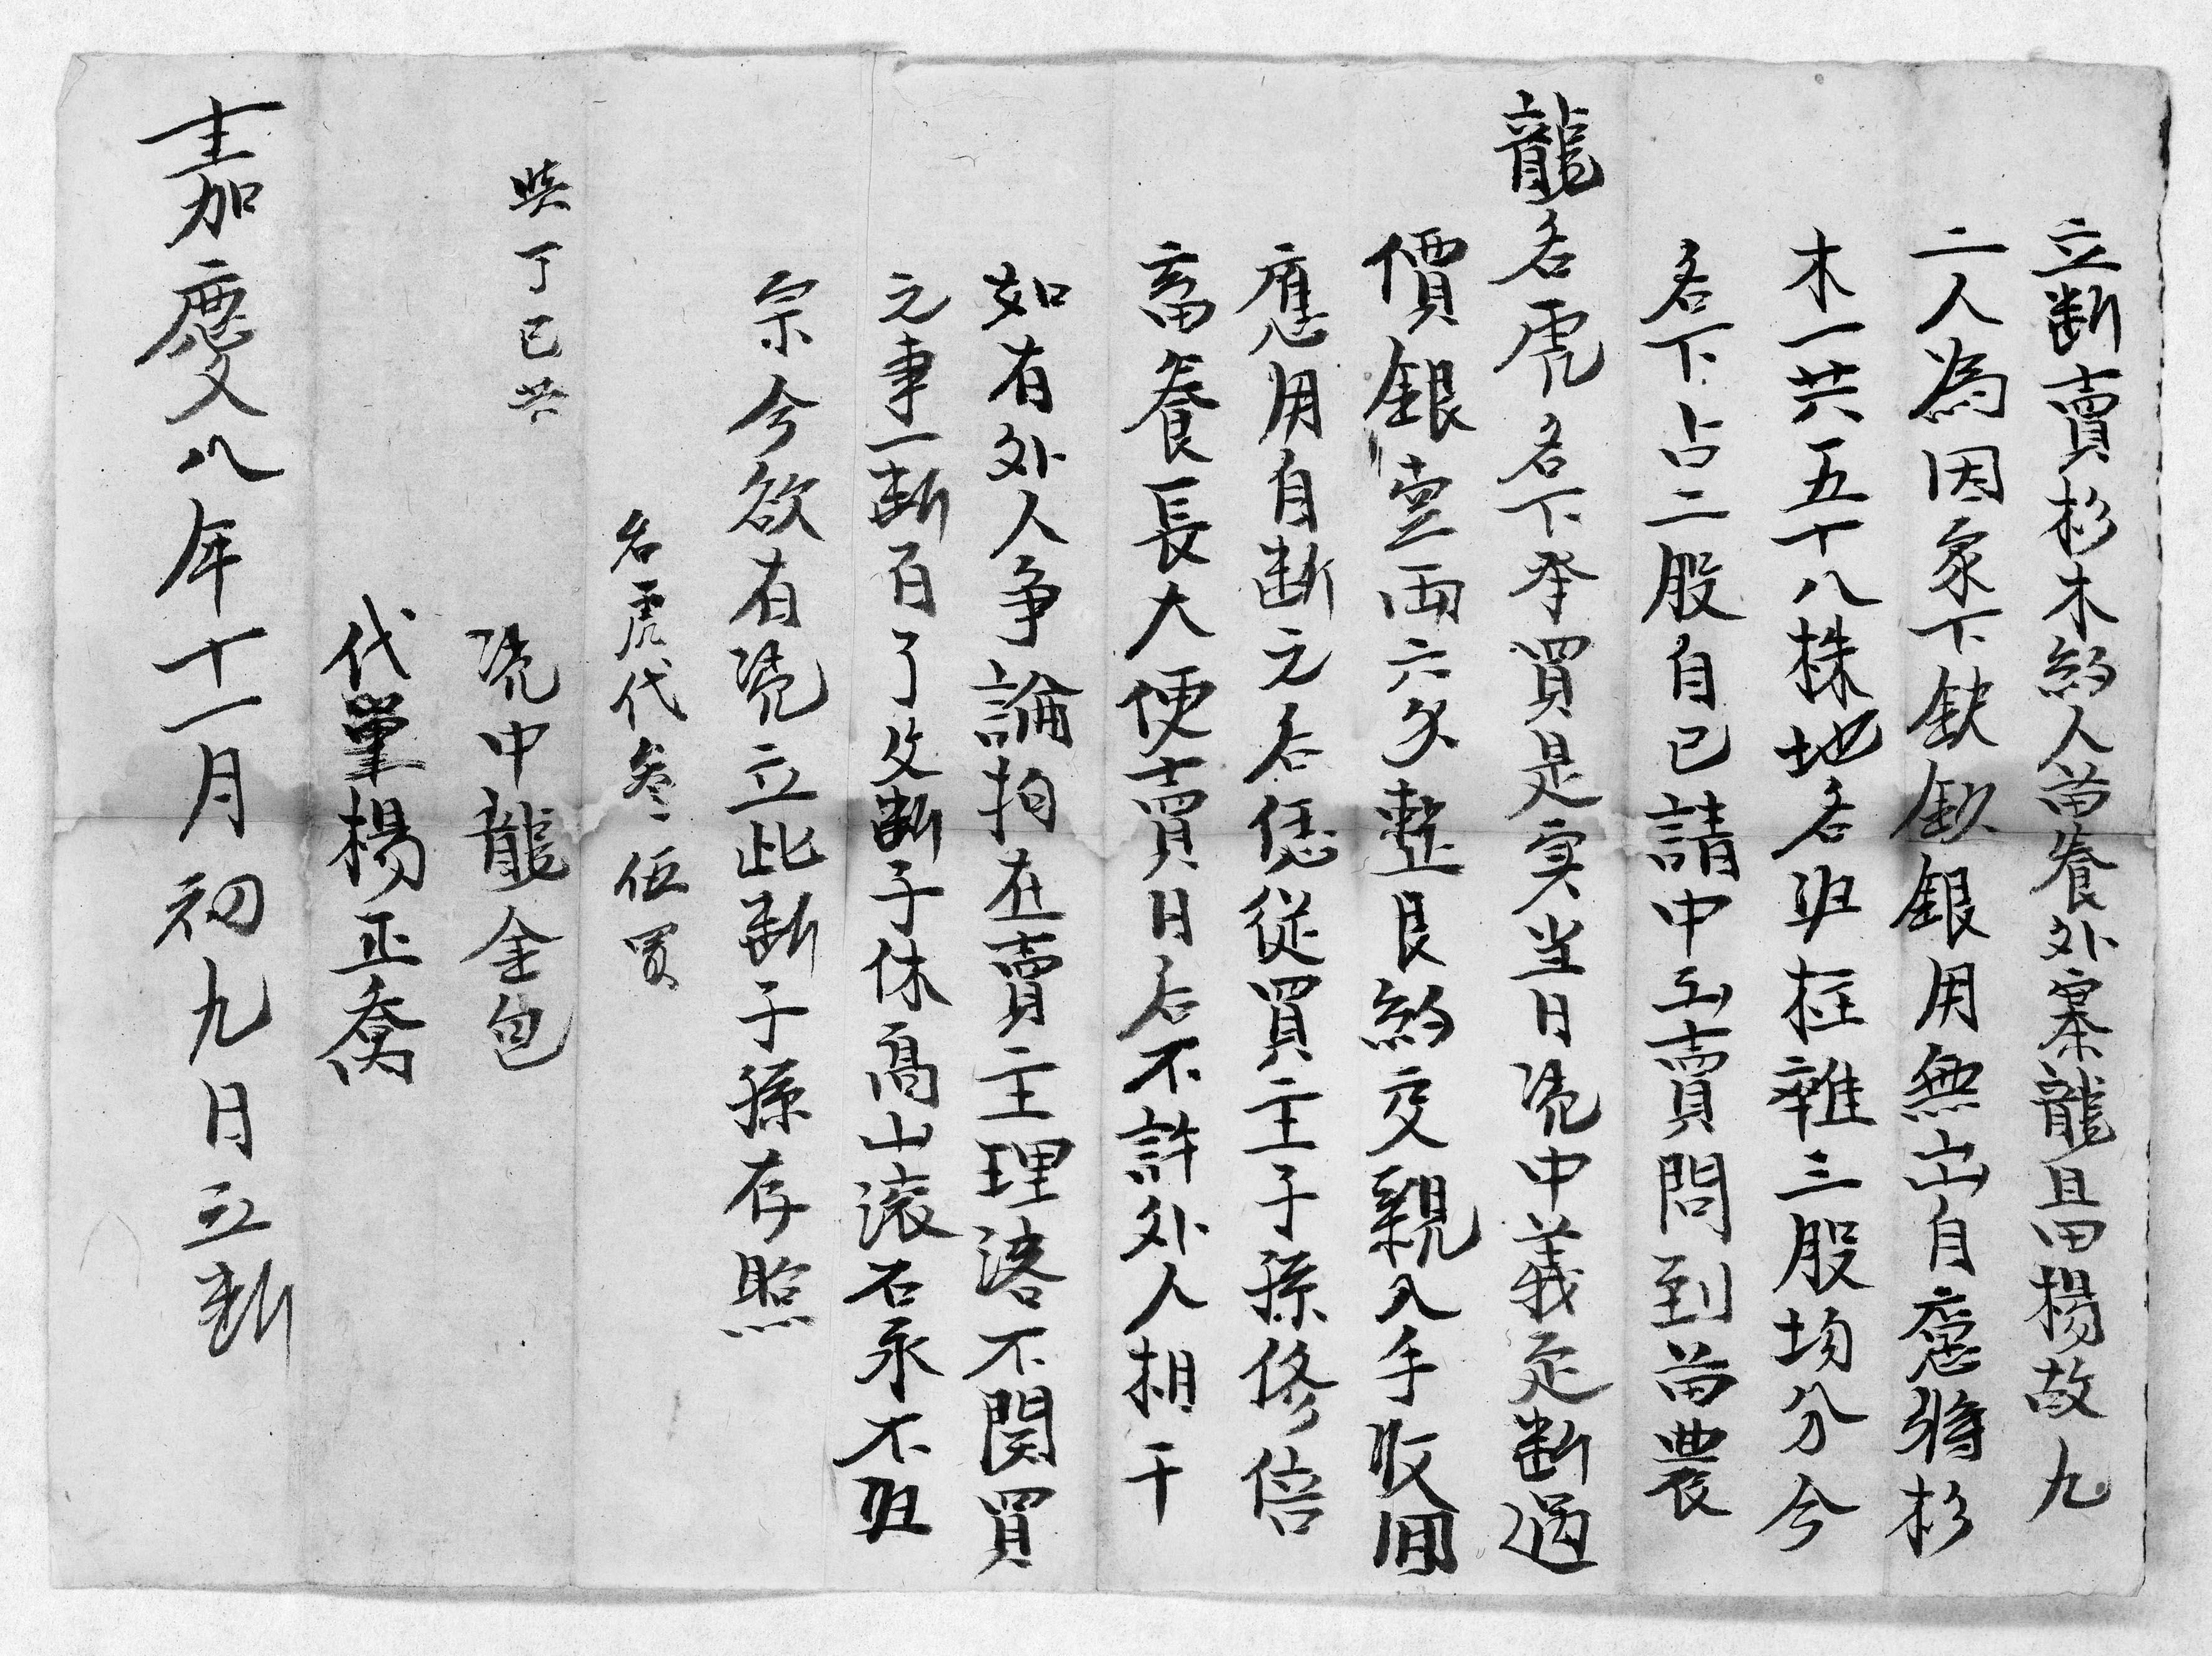 立断賣杉木約人苗養外寨龍昌楊故九
二人為因家下缺少銀用無出自愿將杉
木一共五十八株地名班枉雜三股均分今
名下占二股自已請中出賣問到苗農
龍名虎名下承買是实当日凭中義定断過
價銀壹両六分整艮約交親入手收囬
應用自断之后凴從買主子孫修倍
畜養長大便賣日后不許外人相干
如有外人争論拘在賣主理洛不関買
元事一断百了父断子休高山滚石永不归
宗今欲有凴立此断子孫存照
名虎代叁伍買
與丁已共
凭中龍金包
代筆楊正喬
嘉慶八年十一月初九日立断